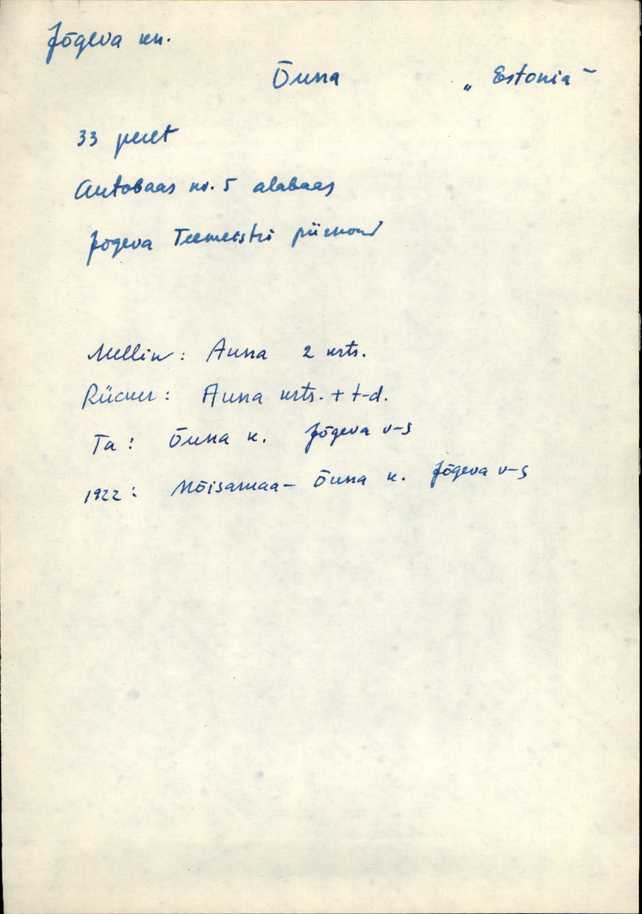 Jõgeva kn.
Õuna „Estonia“
33 peret
Autobaas nr. 5 alabaas
Jõgeva Teemeistri piirkond
Mellin: Auna 2 krts.
Rücker: Auna krts. + t-d.
Ta: Õuna k. Jõgeva v-s
1922: Mõisamaa- Õuna k. Jõgeva v-s